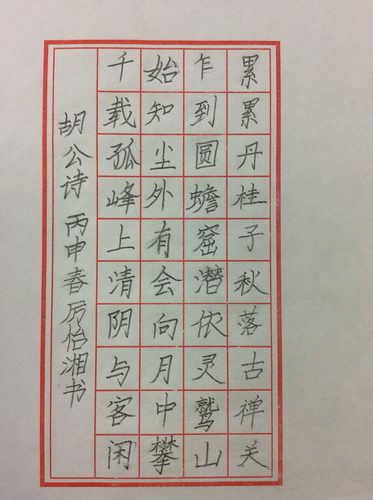 累累丹桂子秋落古禅关
乍到圆蟾窟潜依灵鹫山
始知尘外有会向月中攀
千载孤峰上清阴与客闲
胡公诗 丙申春厉怡湘书